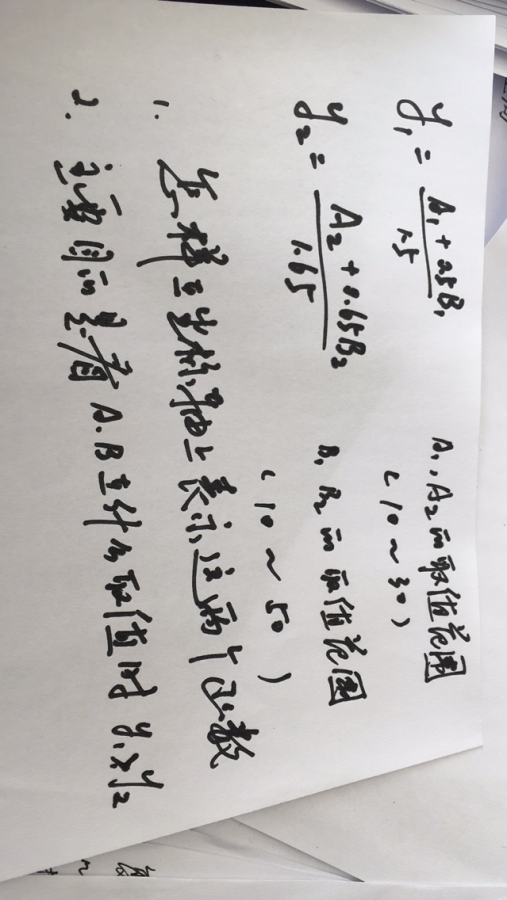 y₁ = (A₁ + 0.5B₁) / 1.5 A₁,A₂的取值范围
(10~30)
y₂ = (A₂ + 0.65B₂) / 1.65 B₁ B₂的取值范围
(10~50)
1. 怎样在坐标轴上表示这两个函数
2. 主要目的是看A.B在什么取值时 y₁>y₂